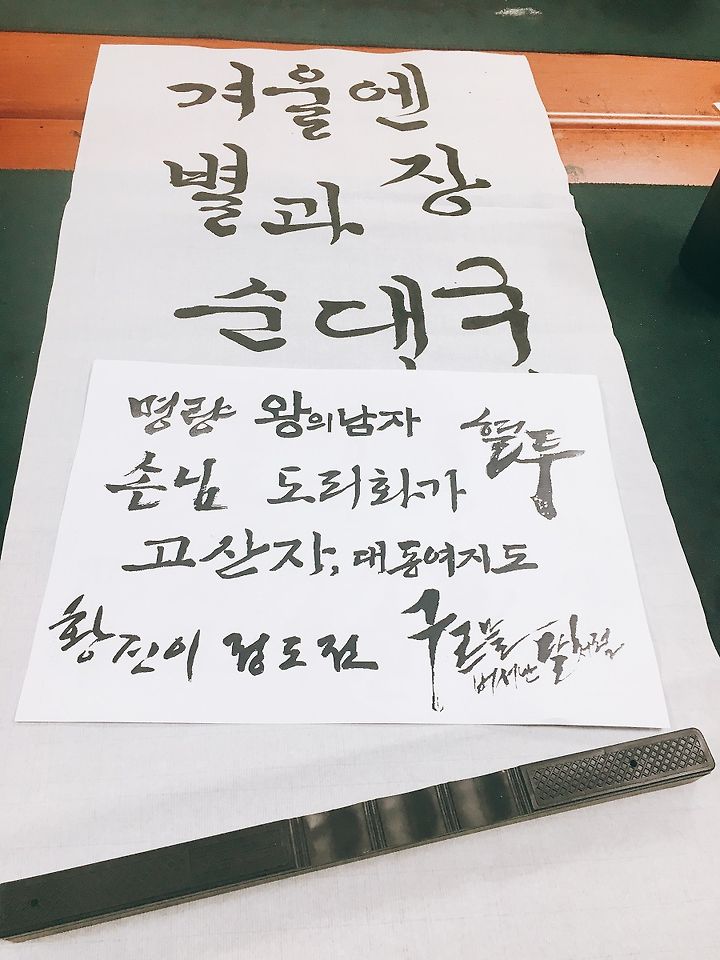 겨울엔
별과 장
순대국
명량 왕의남자 혈투
손님 도리화가
고산자; 대동여지도
황진이 정도전 구르믈
버서난 달처럼